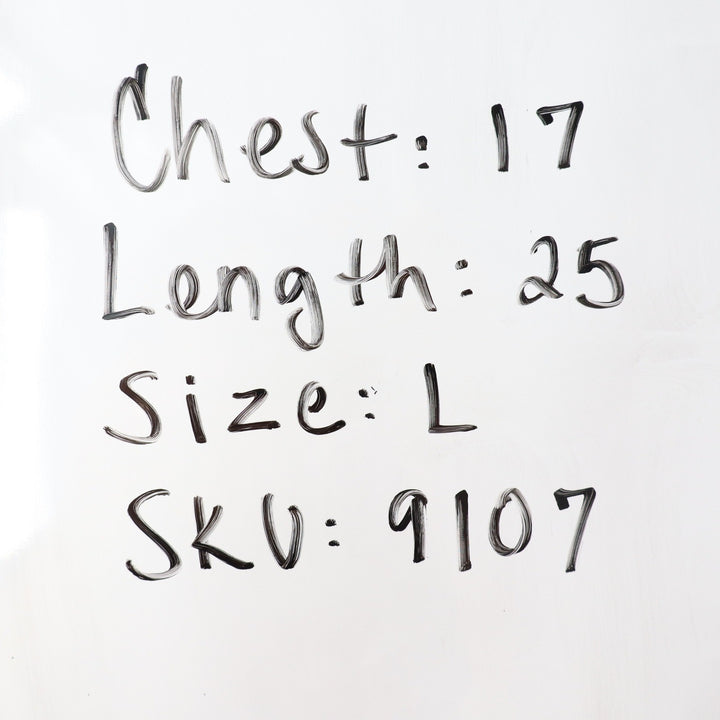 Chest: 17
Length: 25
Size: L
SKU: 9107